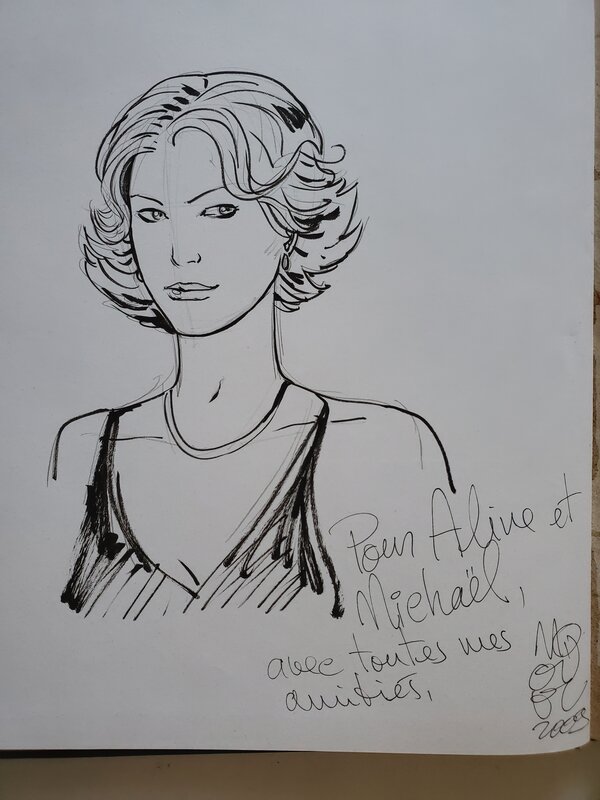 Pour Aline et
Michaël,
avec toutes mes
amitiés,
2003